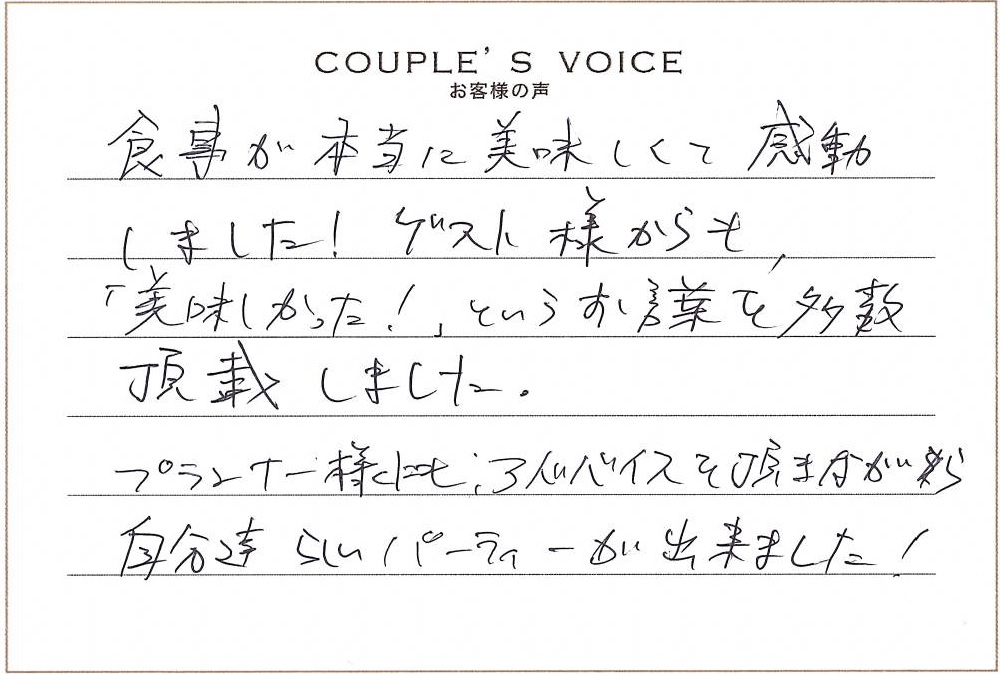 COUPLE'S VOICE
お客様の声
食事が本当に美味しくて感動
しました！ゲスト様からも、
「美味しかった！」というお言葉を多数
頂戴しました。
プランナー様にも、アドバイスを頂きながら
自分達らしいパーティーが出来ました！